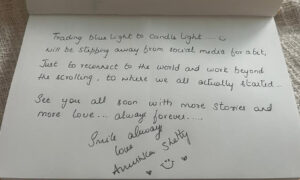 Trading blue light to candle light....
will be stepping away from social media for a bit,
Just to reconnect to the world and work beyond
the scrolling, to where we all actually started...
See you all soon with more stories and
more love... always forever.....
Smile always
love
Anushka Shetty